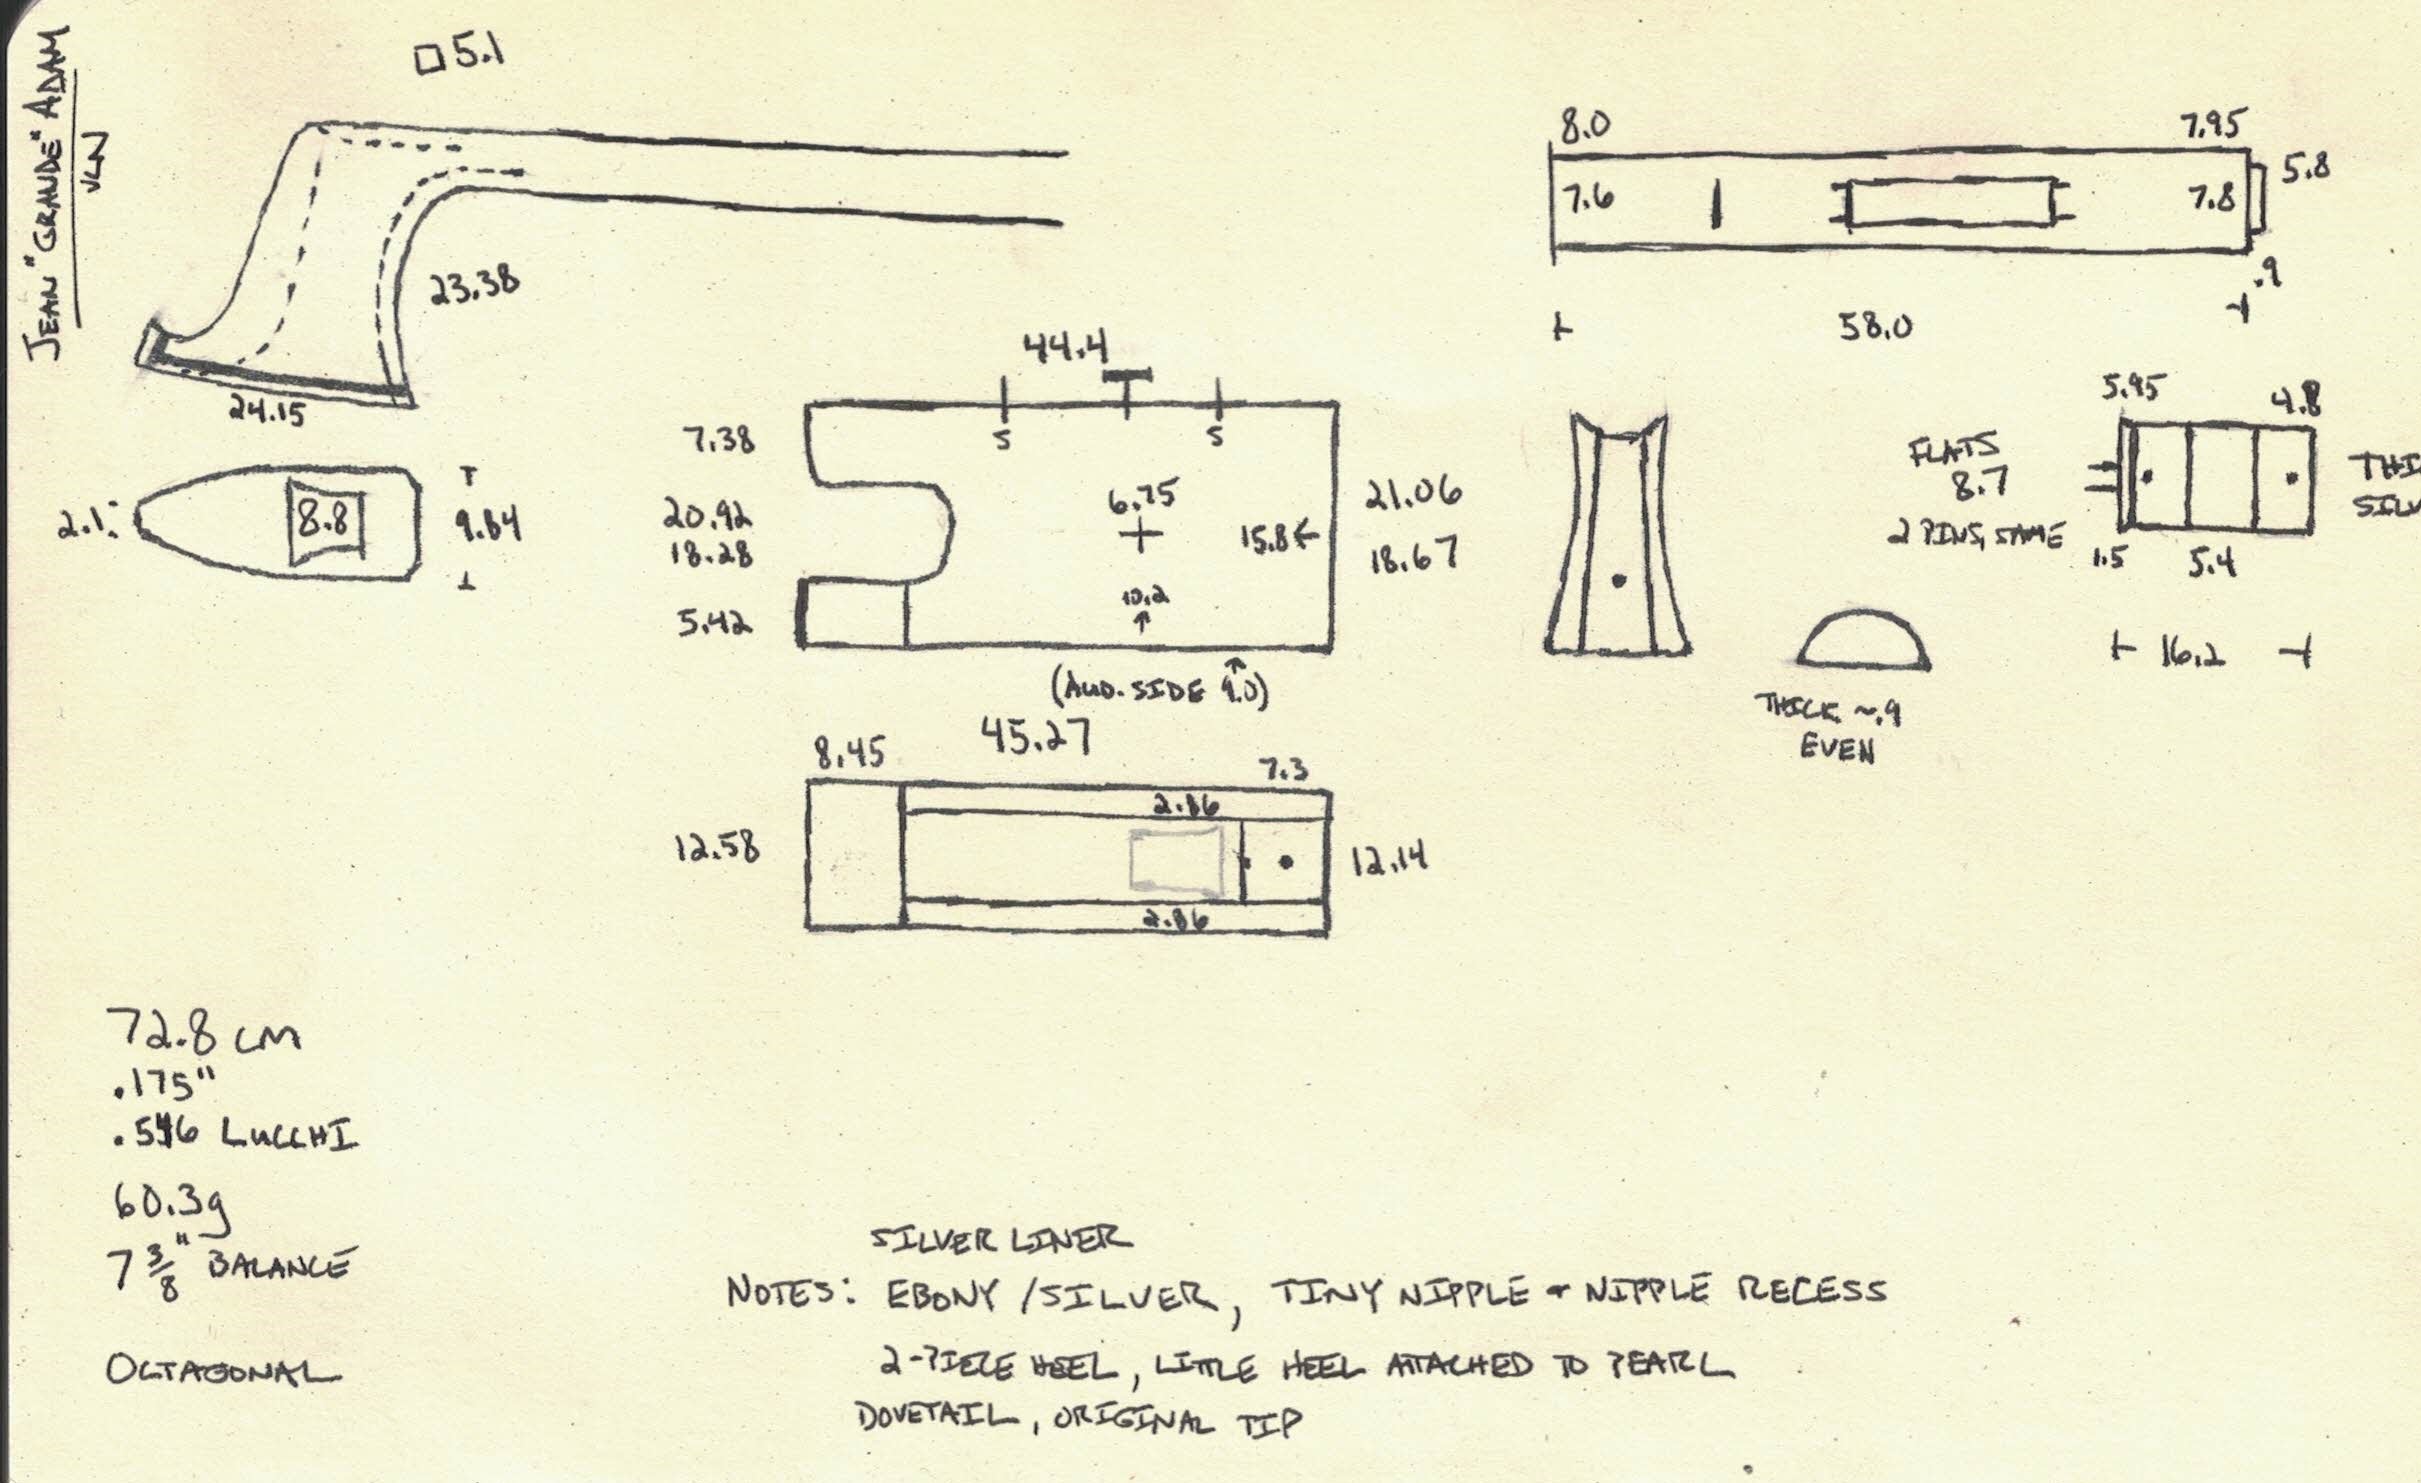 JEAN "GRANDE" ADAM
VLN
□5.1
23.38
24.15
2.1
8.8
9.84
44.4
S
S
7.38
20.92
18.28
5.42
6.75
15.8
10.2
21.06
18.67
(AUD. SIDE 9.0)
45.27
8.45
7.3
2.86
12.58
12.14
2.86
8.0
7.95
5.8
7.6
7.8
.9
58.0
5.95
4.8
FLATS
8.7
2 PINS, SAME
1.5
5.4
16.2
THICK ~.9
EVEN
72.8 CM
.175"
LUCCHI
60.3g
7 3/8" BALANCE
OCTAGONAL
SILVER LINER
NOTES: EBONY /SILVER, TINY NIPPLE & NIPPLE RECESS
2-PIECE HEEL, LITTLE HEEL ATTACHED TO PEARL
DOVETAIL, ORIGINAL TIP